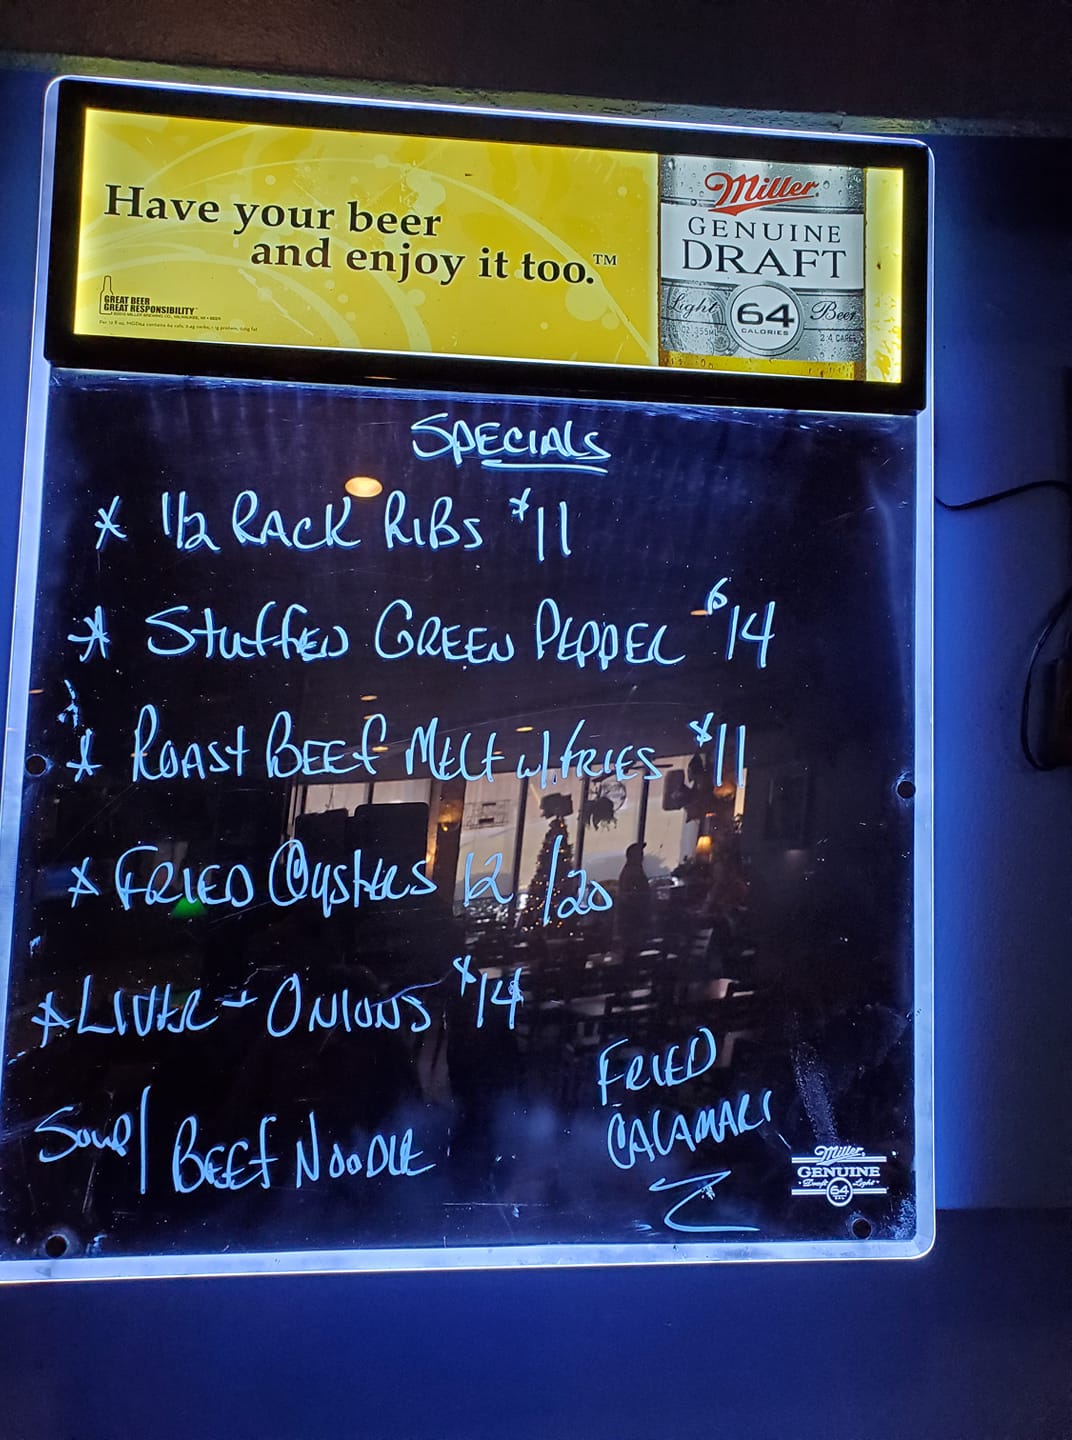 Have your beer
and enjoy it too.™
GREAT BEER
GREAT RESPONSIBILITY
Miller
GENUINE
DRAFT
Light 64 Beer
CALORIES
SPECIALS
* 1/2 RACK RIBS $11
* Stuffed GREEN PEPPER $14
* ROAST BEEF MELT w/FRIES $11
* FRIED OysteRS 12/20
* LIVER + ONIONS $14
FRIED
CALAMARI
Soup/ BEEF NOODLE
Miller
GENUINE
Draft Light
64